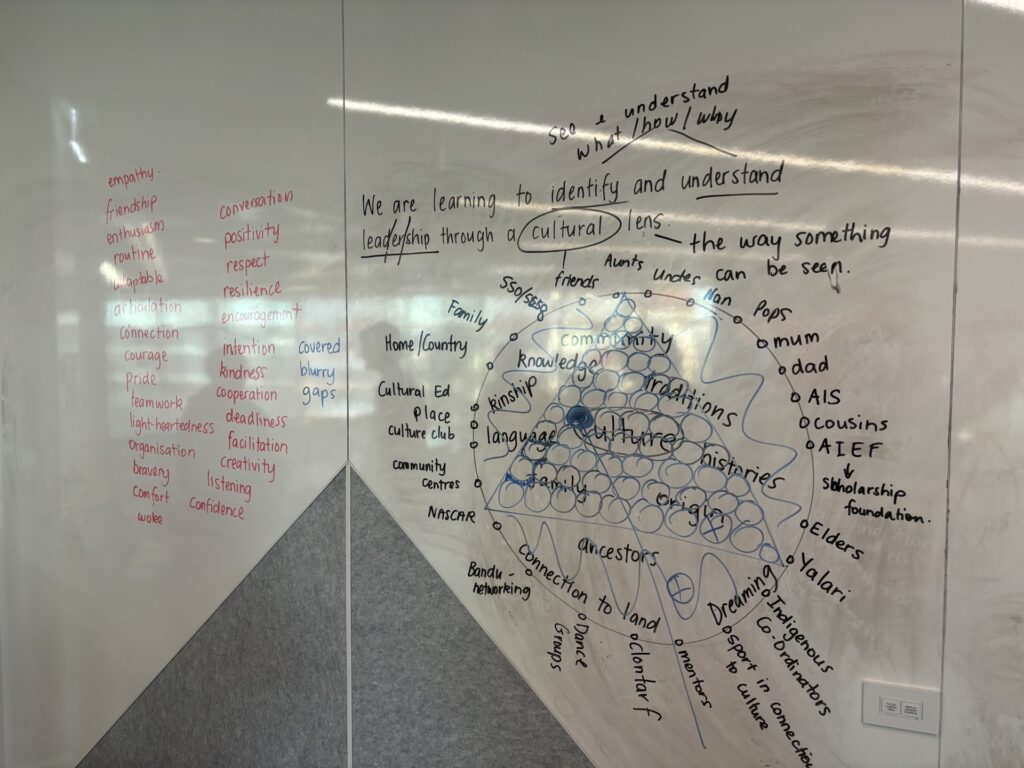 empathy.
friendship
enthusiasm
routine
adaptable
articulation
connection
courage
pride
teamwork
light-heartedness
organisation
bravery
comfort
woke
conversation
positivity
respect
resilience
encouragement
intention
kindness
cooperation
deadliness
facilitation
creativity
listening
confidence
covered
blurry
gaps
see & understand
what / how / why
We are learning to identify and understand
leadership through a cultural lens.
the way something
can be seen.
friends
Aunts
Nan
Pops
mum
dad
AIS
cousins
AIEF
foundation.
Elders
Yalari
Indigenous
Co-Ordinators
sport in connection
to culture
mentors
clontarf
Dance
Groups
Bandu-
networking
NASCAR
community
centres
Culture club
Cultural Ed
Place
Home/Country
Family
community
knowledge
kinship
traditions
language
Culture
histories
family
origin
ancestors
connection to land
Dreaming